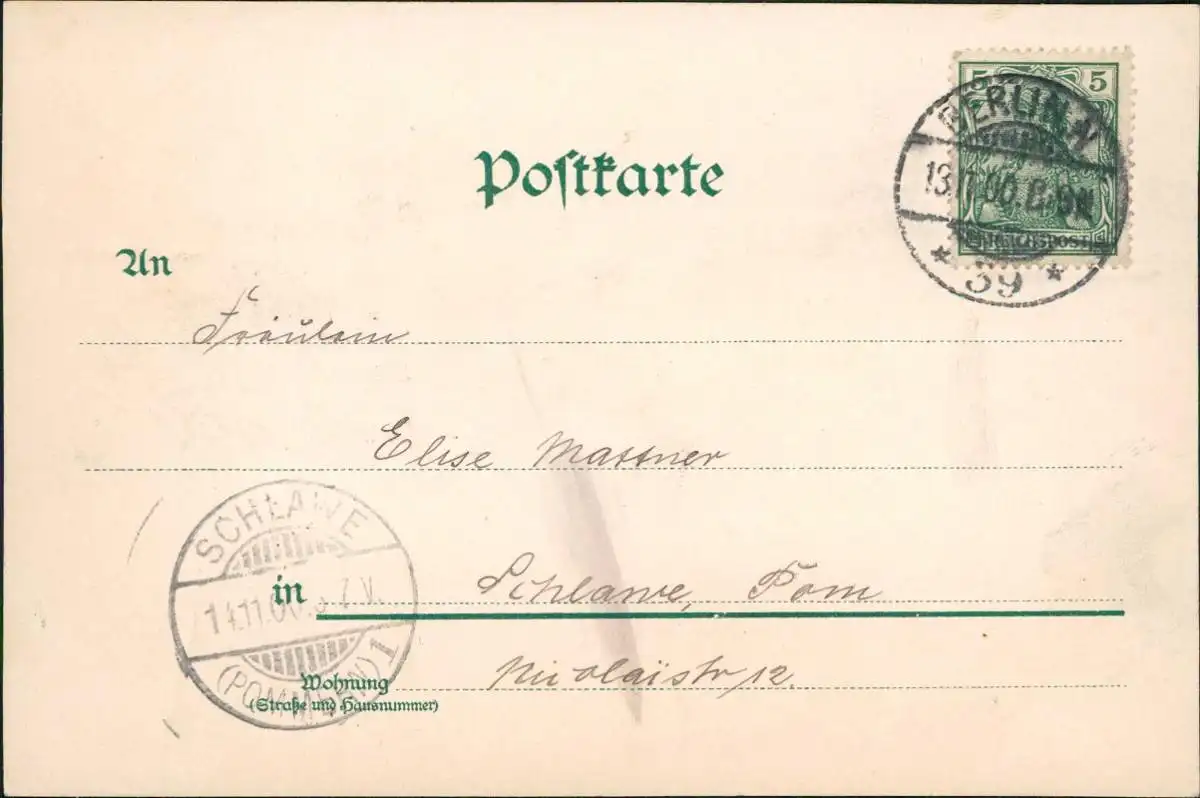 5 5
BERLIN.N
13.11.00.
REICHSPOST
* 39 *
Postkarte
An
Fräulein
Elise Massner
SCHLAWE
14.11.00. 7 V.
(POMMERN) 1
in Schlawe, Pom
Wohnung Nicolaistr 12.
(Straße und Hausnummer)